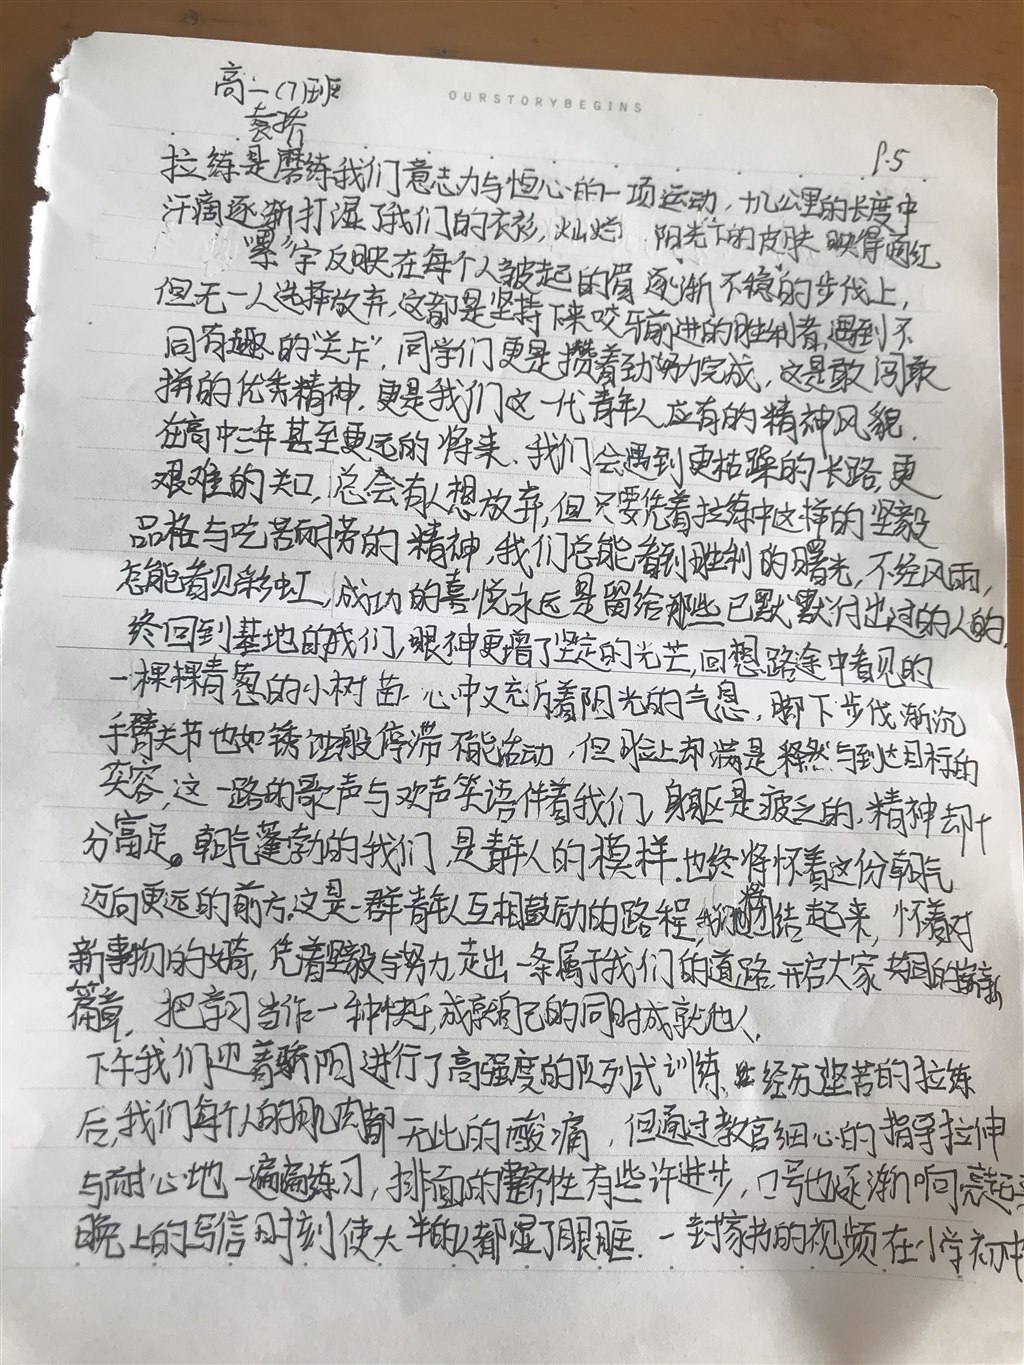 OURSTORYBEGINS
高一(7)班
袁桥
P.5
拉练是磨练我们意志力与恒心的一项运动，十几公里的长度中
汗滴逐渐打湿了我们的衣衫，灿烂 阳光下的皮肤映得通红
"累"字反映在每个人皱起的眉逐渐不稳的步伐上，
但无一人选择放弃，这都是坚持下来咬牙前进的胜利者，遇到不
同有趣的"关卡"，同学们更是攒着劲努力完成，这是敢闯敢
拼的优秀精神，更是我们这一代青年人应有的精神风貌．
在高中三年甚至更远的将来、我们会遇到更枯躁的长路，更
艰难的关口，总会有人想放弃，但只要凭着拉练中这样的坚毅
品格与吃苦耐劳的精神，我们总能看到胜利的曙光，不经风雨，
怎能看见彩虹，成功的喜悦永远是留给那些已默默付出过的人的．
终回到基地的我们，眼神更增了坚定的光芒，回想路途中看见的
一棵棵青葱的小树苗 心中又充斥着阳光的气息，脚下步伐渐沉
手臂关节也如锈蚀般停滞不能活动，但脸上却满是释然与到达目标的
笑容，这一路的歌声与欢声笑语伴着我们，身躯是疲乏的，精神却十
分富足。朝气蓬勃的我们，是青年人的模样．也终将怀着这份朝气
迈向更远的前方，这是一群青年人互相鼓励的路程，我们团结起来，怀着对
新事物的好奇，凭着坚毅与努力，走出一条属于我们的道路 开启大家共同的崭新
篇章，把学习当作一种快乐，成就自己的同时成就他人．
下午我们迎着骄阳进行了高强度的队列式训练、经历坚苦的拉练
后，我们每个人的肌肉都无比的酸痛，但通过教官细心的指导拉伸
与耐心地一遍遍练习，排面的整齐性有些许进步，口号也逐渐响亮起来
晚上的写信时刻使大半的人都湿了眼眶．一封家书的视频在小学初中